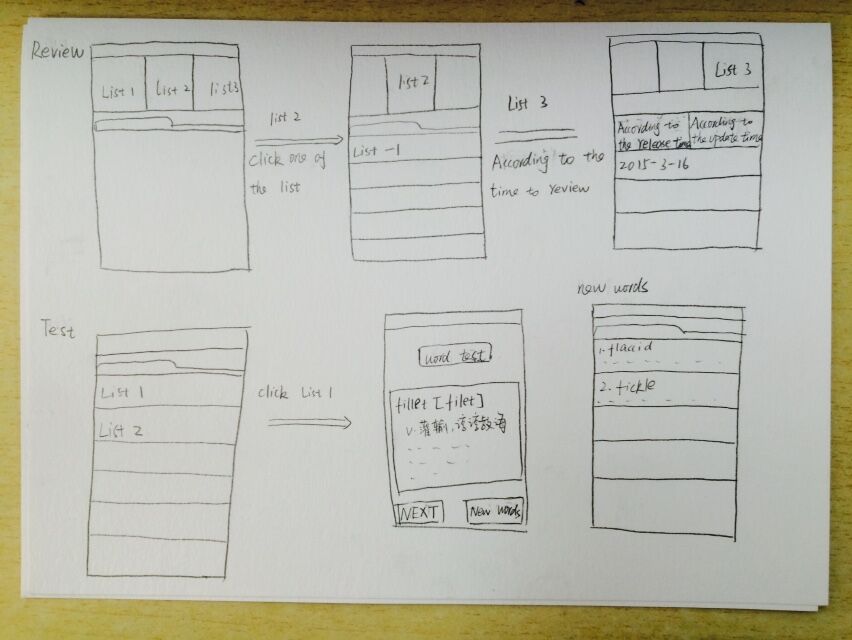 Review
List 1
List 2
list3
list 2
Click one of
the list
list 2
List -1
List 3
According to the
time to review
List 3
According to
the release time
According to
the update time
2015-3-16
Test
List 1
List 2
Click List 1
word test
fillet [filet]
v. 灌输,谆谆教诲
NEXT
New words
new words
1. flacid
2. tickle